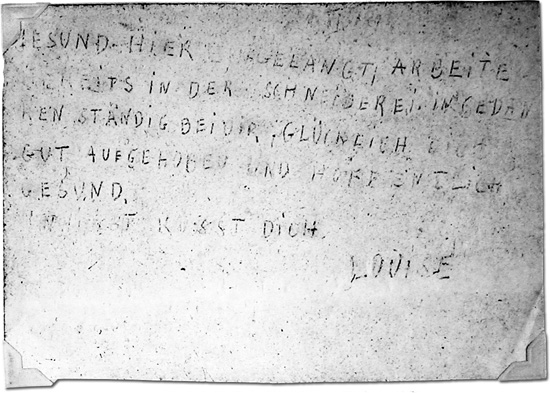 GESUND HIER EINGELANGT, ARBEITE
BEREITS IN DER SCHNEIDEREI. IN GEDAN
KEN STÄNDIG BEI DIR, GLÜCKLICH DICH
GUT AUFGEHOBEN UND HOFFENTLICH
GESUND.
INNIGST KÜSST DICH
LOUISE